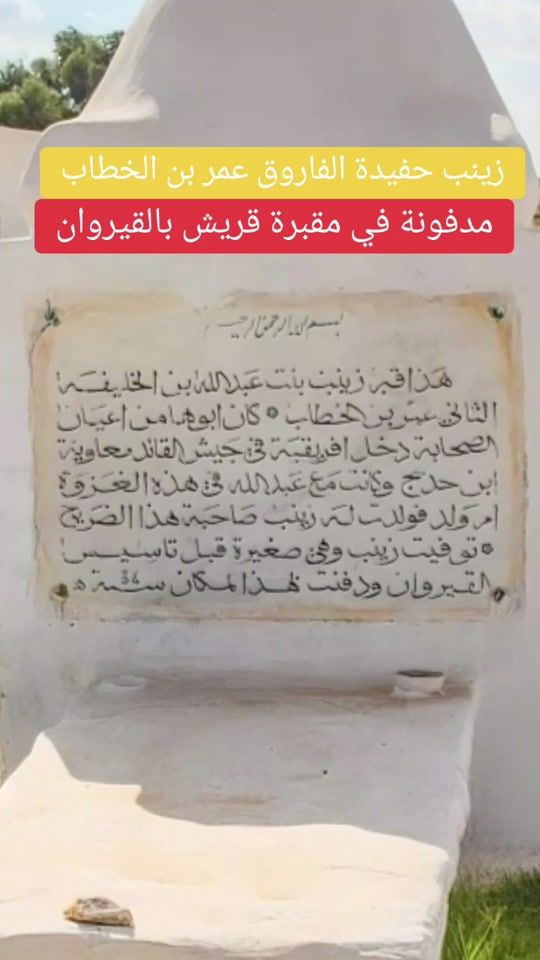 زينب حفيدة الفاروق عمر بن الخطاب
مدفونة في مقبرة قريش بالقيروان
بسم الله الرحمن الرحيم
هذا قبر زينب بنت عبدالله بن الخليفة
الثاني عمر بن الخطاب * كان ابوها من اعيان
الصحابة دخل افريقية في جيش القائد معاوية
ابن حديج وكانت مع عبدالله في هذه الغزوة
ام ولد فولدت له زينب صاحبة هذا الضريح
* توفيت زينب وهي صغيرة قبل تاسيس
القيروان ودفنت لهذا المكان سنة 34 ه